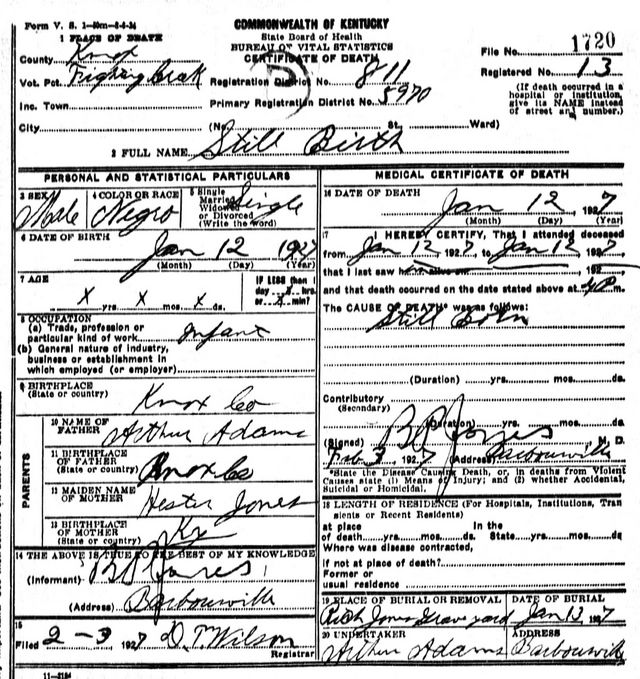 Form V. S. 1-50m-8-4-24
COMMONWEALTH OF KENTUCKY
State Board of Health
BUREAU OF VITAL STATISTICS
CERTIFICATE OF DEATH
1 PLACE OF DEATH
County Knox
Vot. Pct.
Inc. Town
City
Registration District No. 811
Primary Registration District No. 5970
(No. St. Ward)
File No. 1720
Registered No. 13
(If death occurred in a
hospital or institution,
give its NAME instead
of street and number.)
2 FULL NAME Still Birth
PERSONAL AND STATISTICAL PARTICULARS
3 SEX Male
4 COLOR OR RACE Negro
5 Single
Married
Widowed
or Divorced
(Write the word) Single
6 DATE OF BIRTH
Jan 12 1927
(Month) (Day) (Year)
7 AGE
X yrs. X mos. X ds.
IF LESS than 1
day X hrs.
or X min?
8 OCCUPATION
(a) Trade, profession or
particular kind of work Infant
(b) General nature of industry,
business or establishment in
which employed (or employer)
9 BIRTHPLACE
(State or country) Knox Co
PARENTS
10 NAME OF
FATHER Arthur Adams
11 BIRTHPLACE
OF FATHER
(State or country) Knox Co
12 MAIDEN NAME
OF MOTHER Hester Jones
13 BIRTHPLACE
OF MOTHER
(State or country) Ky
14 THE ABOVE IS TRUE TO THE BEST OF MY KNOWLEDGE
(Informant) B P Jones
(Address) Barbourville
15
Filed 2-3 1927 Wilson
Registrar
11-3184
MEDICAL CERTIFICATE OF DEATH
16 DATE OF DEATH
Jan 12 1927
(Month) (Day) (Year)
17 I HEREBY CERTIFY, That I attended deceased
from Jan 12 1927, to Jan 12 1927,
that I last saw him alive on 192
and that death occurred on the date stated above at m.
The CAUSE OF DEATH* was as follows:
Still Born
(Duration) yrs. mos. ds.
Contributory
(Secondary)
(Duration) yrs. mos. ds.
(Signed) B P Jones M. D.
Feb 3 1927 (Address) Barbourville
*State the Disease Causing Death, or, in deaths from Violent
Causes state (1) Means of Injury; and (2) whether Accidental,
Suicidal or Homicidal.
18 LENGTH OF RESIDENCE (For Hospitals, Institutions, Tran
sients or Recent Residents)
at place In the
of death yrs. mos. ds. State yrs. mos. ds.
Where was disease contracted,
if not at place of death?
Former or
usual residence
19 PLACE OF BURIAL OR REMOVAL
Jones Graveyard
DATE OF BURIAL
Jan 13 1927
20 UNDERTAKER
Arthur Adams
ADDRESS
Barbourville